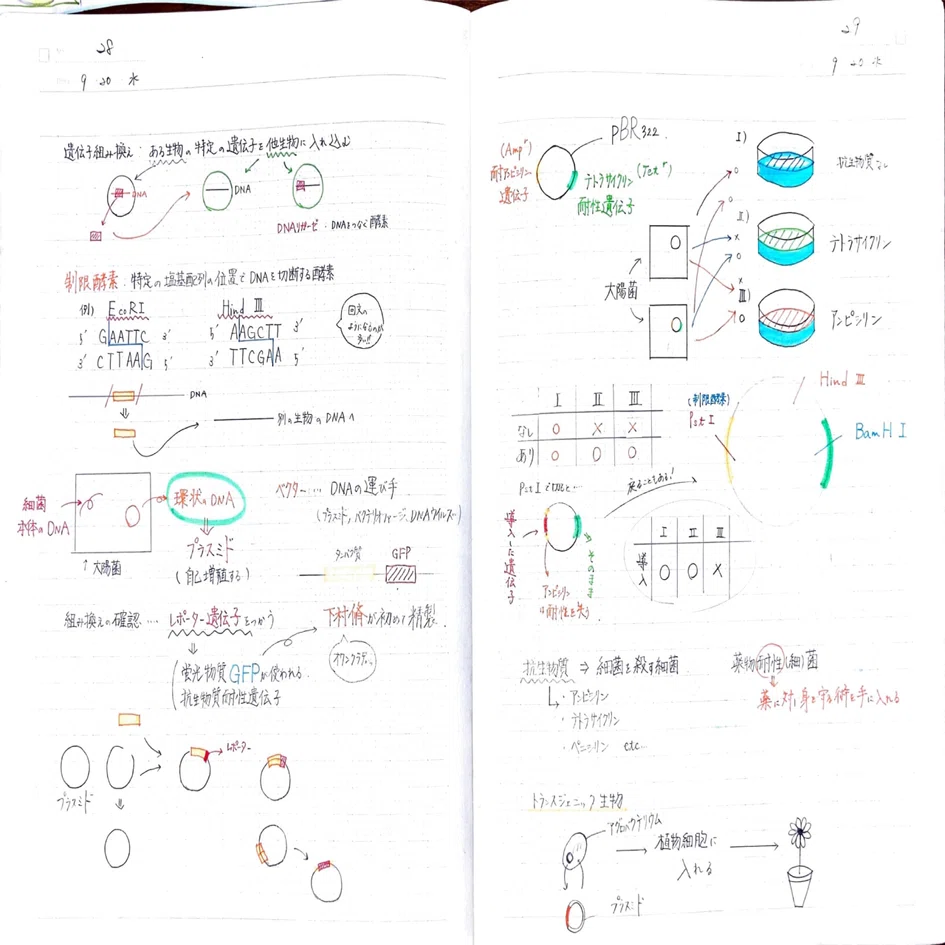 28
9 20 水
遺伝子組み換え:ある生物の特定の遺伝子を他生物に入れ込む
DNA
DNA
DNAリガーゼ・DNAをつなぐ酵素
制限酵素:特定の塩基配列の位置でDNAを切断する酵素
例) EcoRI
5' GAATTC 3'
3' CTTAAG 5'
Hind III
5' AAGCTT 3'
3' TTCGAA 5'
回文の
DNA
別の生物のDNAへ
細菌
本体のDNA
環状のDNA
↑大腸菌
プラスミド
(自己増殖する)
ベクター… DNAの運び手
(プラスミド,バクテリオファージ,DNAウイルス…)
タンパク質
GFP
組み換えの確認… レポーター遺伝子をつかう
蛍光物質GFPが使われる.
抗生物質耐性遺伝子
下村脩が初めて精製.
オワンクラゲ…
レポーター
プラスミド
29
9 20 水
pBR322.
(Ampʳ)
耐アンピシリン
遺伝子
テトラサイクリン(Tetʳ)
耐性遺伝子
大陽菌
I)
抗生物質なし
II)
テトラサイクリン
III)
アンピシリン
I II III
なし ○ × ×
あり ○ ○ ○
(制限酵素)
Pst I
Hind III
BamH I
PstIで切ると…
戻ることもある!
導入した遺伝子
そのまま
アンピシリン
耐性を失う
I II III
導入 ○ ○ ×
抗生物質 ⇒ 細菌を殺す細菌
・アンピシリン
・テトラサイクリン
・ペニシリン etc…
薬物耐性(細)菌
薬に対し身を守る術を手に入れる
トランスジェニック生物
アグロバクテリウム
植物細胞に
入れる
プラスミド